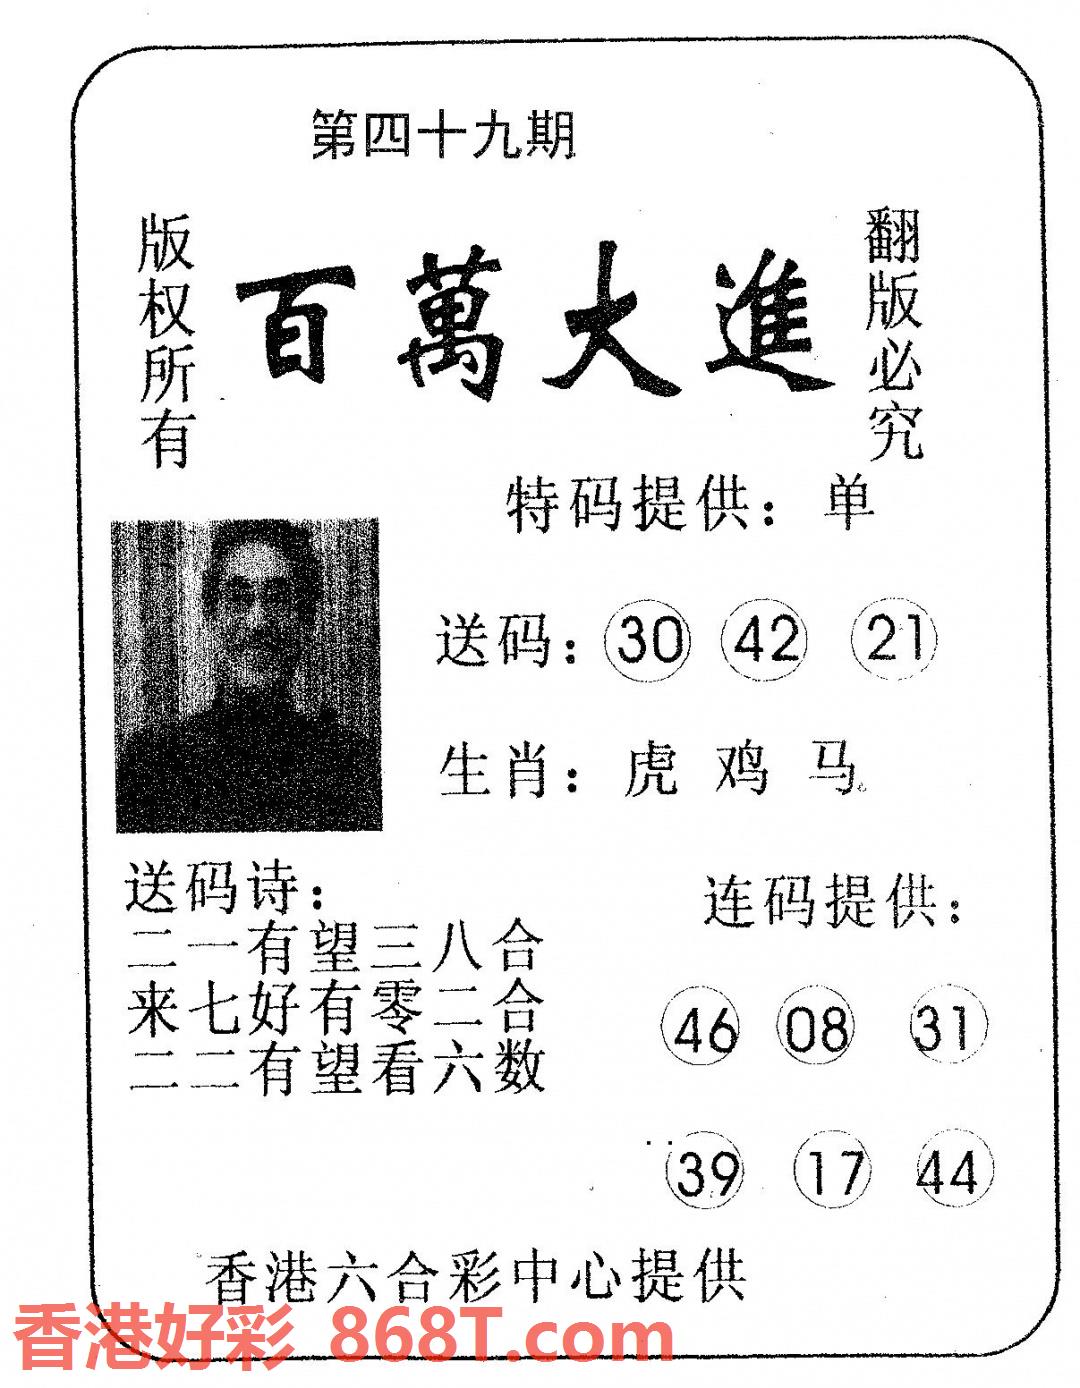 第四十九期
版权所有
百萬大進
翻版必究
特码提供：单
送码：30 42 21
生肖：虎 鸡 马
送码诗：
二一有望三八合
来七好有零二合
二二有望看六数
连码提供：
46 08 31
39 17 44
香港六合彩中心提供
香港好彩 868T.com